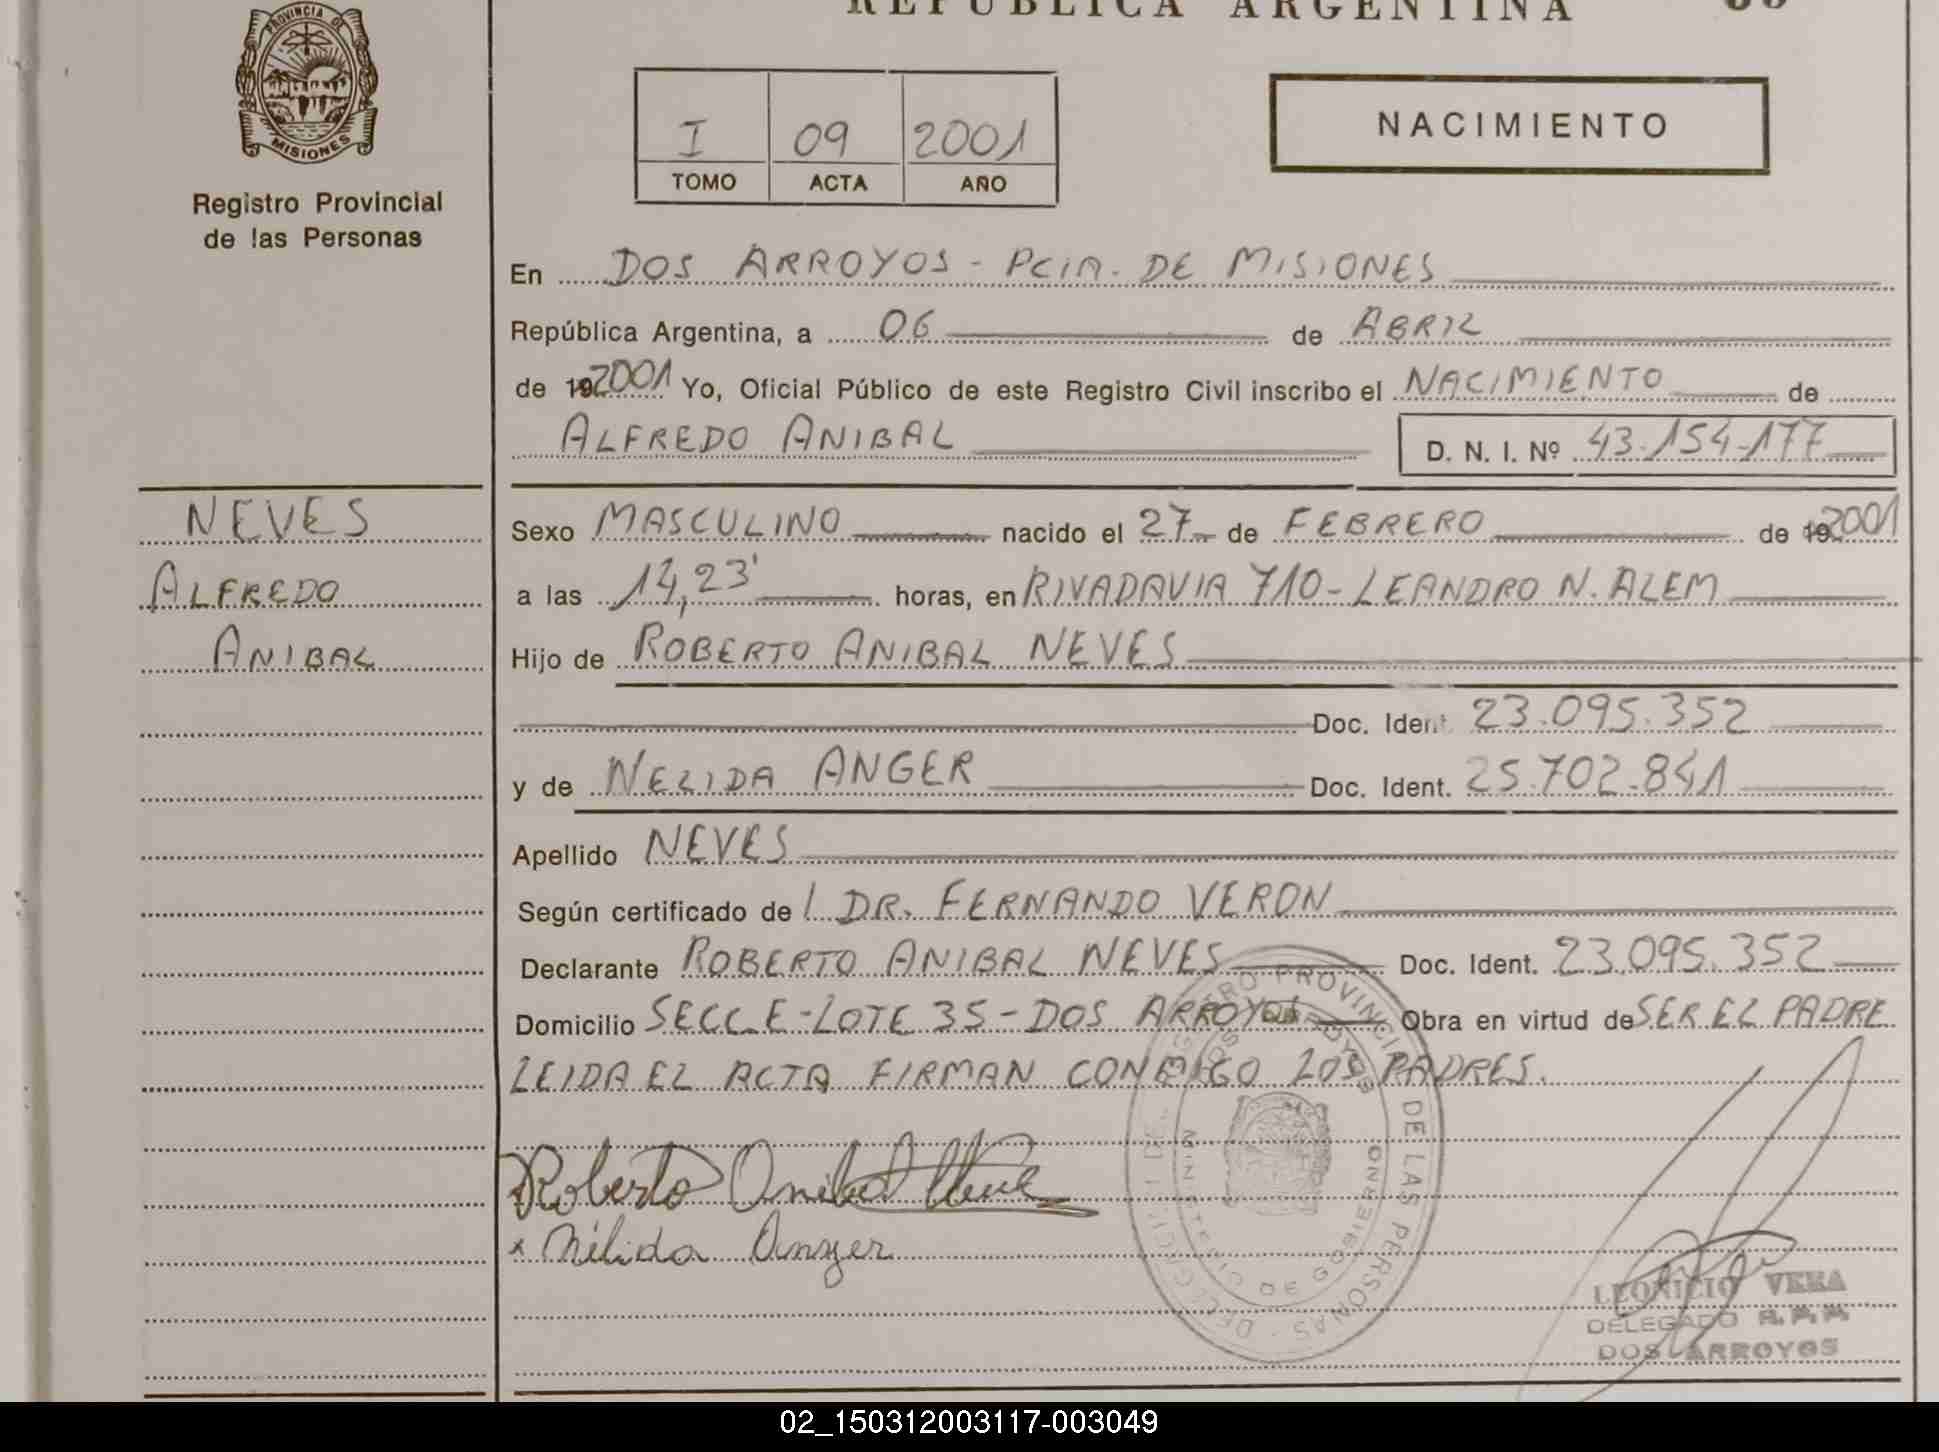 REPUBLICA ARGENTINA
PROVINCIA DE
MISIONES
Registro Provincial
de las Personas
I 09 2001
TOMO ACTA AÑO
NACIMIENTO
En DOS ARROYOS - PCIA. DE MISIONES
República Argentina, a 06 de ABRIL
de 19 2001 Yo, Oficial Público de este Registro Civil inscribo el NACIMIENTO de
ALFREDO ANIBAL D. N. I. Nº 43.154.177
NEVES
ALFREDO
ANIBAL
Sexo MASCULINO nacido el 27 de FEBRERO de 19 2001
a las 14,23' horas, en RIVADAVIA 710 - LEANDRO N. ALEM
Hijo de ROBERTO ANIBAL NEVES
Doc. Ident. 23.095.352
y de NELIDA ANGER Doc. Ident. 25.702.841
Apellido NEVES
Según certificado de DR. FERNANDO VERON
Declarante ROBERTO ANIBAL NEVES Doc. Ident. 23.095.352
Domicilio SECC. E - LOTE 35 - DOS ARROYOS Obra en virtud de SER EL PADRE
LEIDA EL ACTA FIRMAN CONMIGO LOS PADRES.
Roberto Anibal Neve
x Nélida Anger
REGISTRO PROVINCIAL DE LAS PERSONAS
DOS ARROYOS
MINISTERIO DE GOBIERNO
LEONICIO VERA
DELEGADO R.P.P.
DOS ARROYOS
02_150312003117-003049